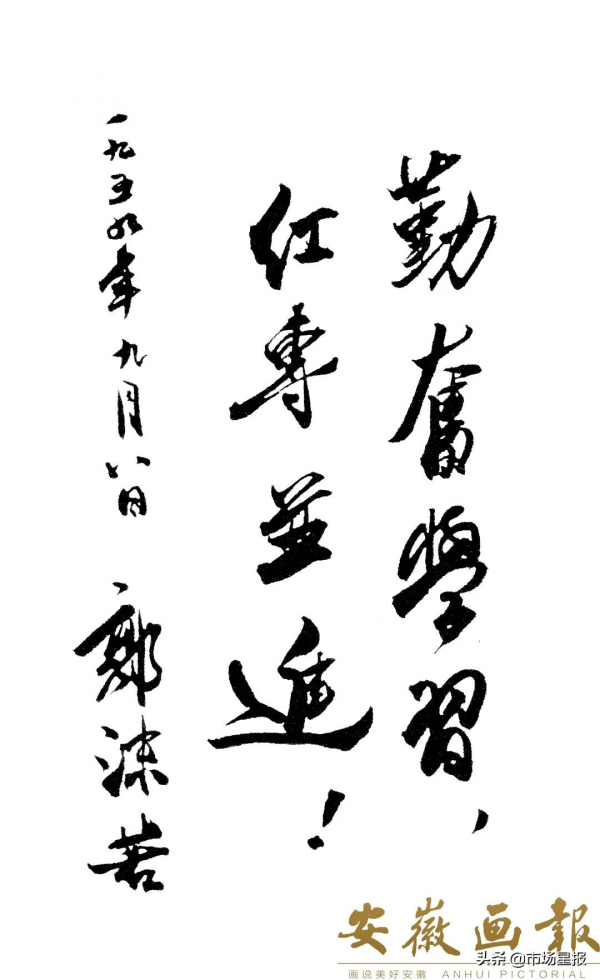 勤奮學習、
红專並進！
一九五九年九月八日 郭沫若
安徽画報
画说美好安徽 ANHUI PICTORIAL
头条 @市场星报